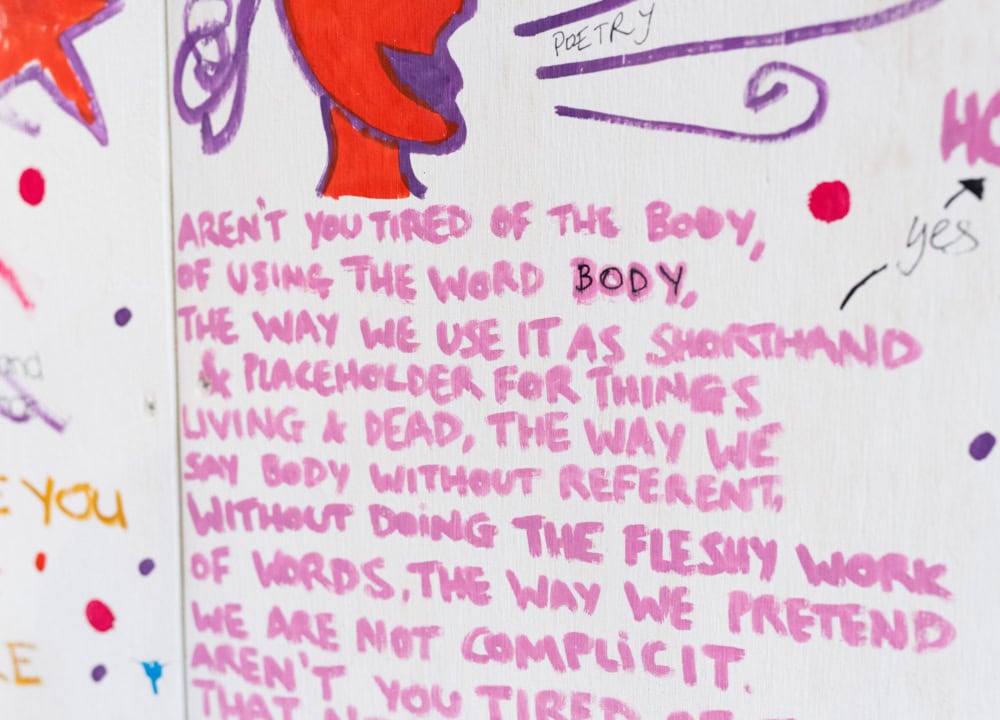 POETRY
HO
yes
AREN'T YOU TIRED OF THE BODY,
OF USING THE WORD BODY,
THE WAY WE USE IT AS SHORTHAND
& PLACEHOLDER FOR THINGS
LIVING & DEAD, THE WAY WE
SAY BODY WITHOUT REFERENT,
WITHOUT DOING THE FLESHY WORK
OF WORDS, THE WAY WE PRETEND
WE ARE NOT COMPLICIT.
AREN'T YOU TIRED OF
THAT
and
E YOU
RE